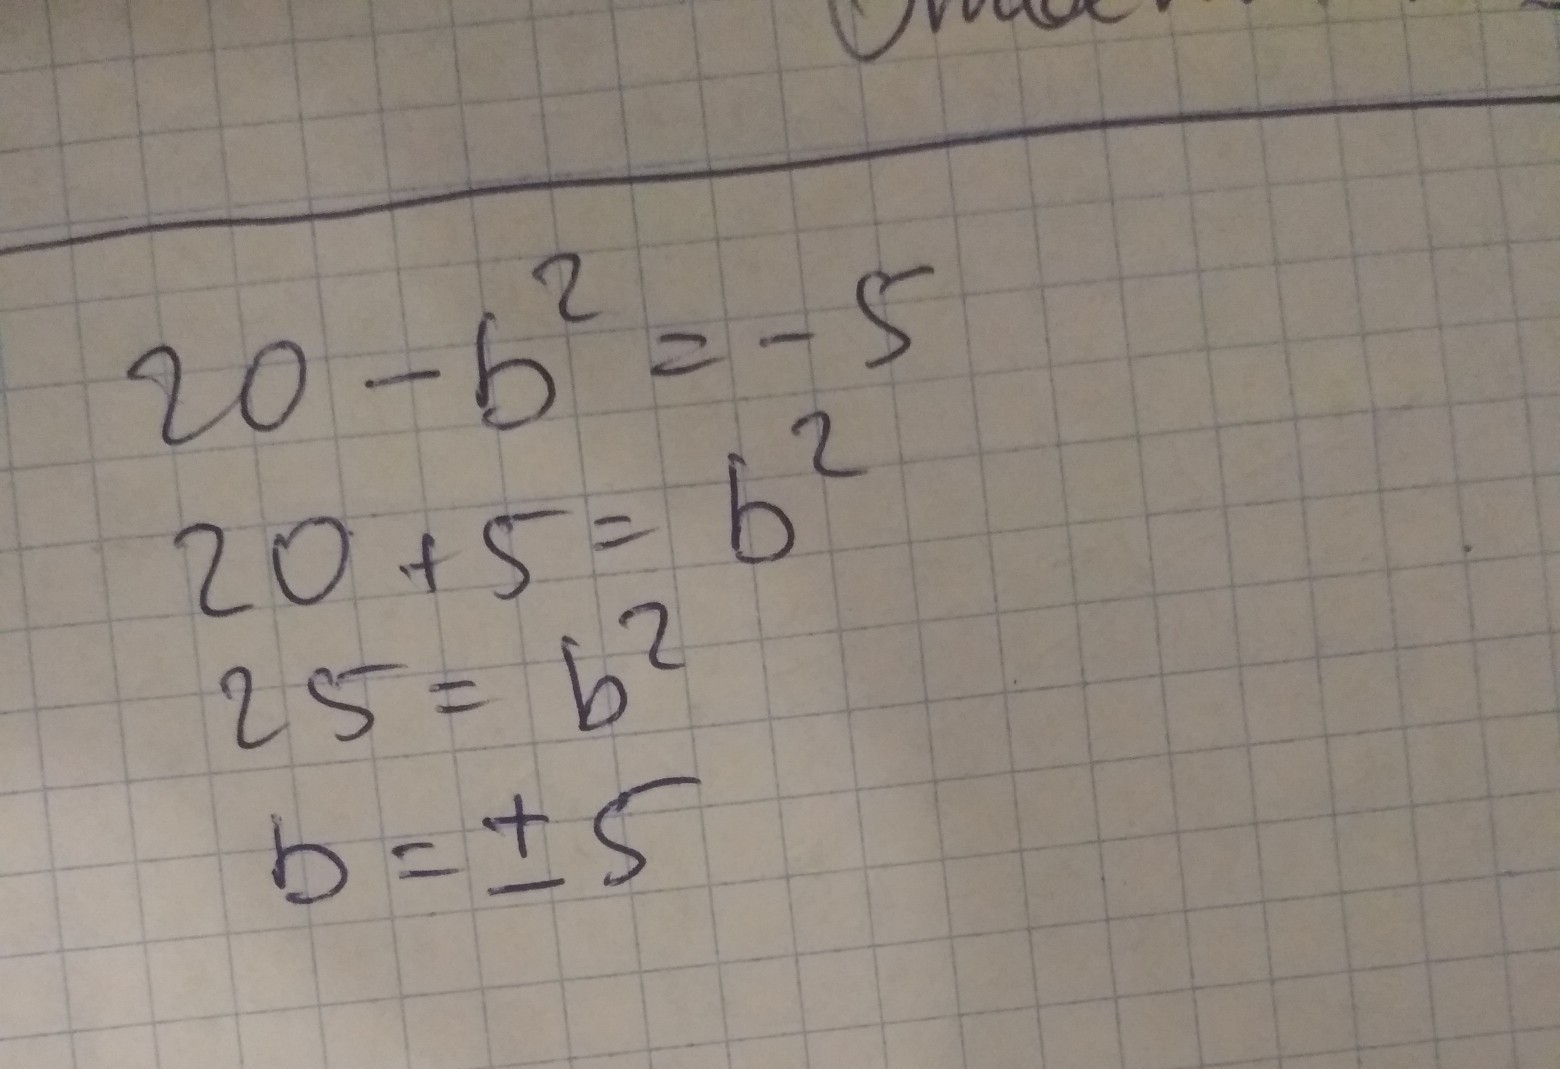 20 - b² = - 5
20 + 5 = b²
25 = b²
b = ± 5